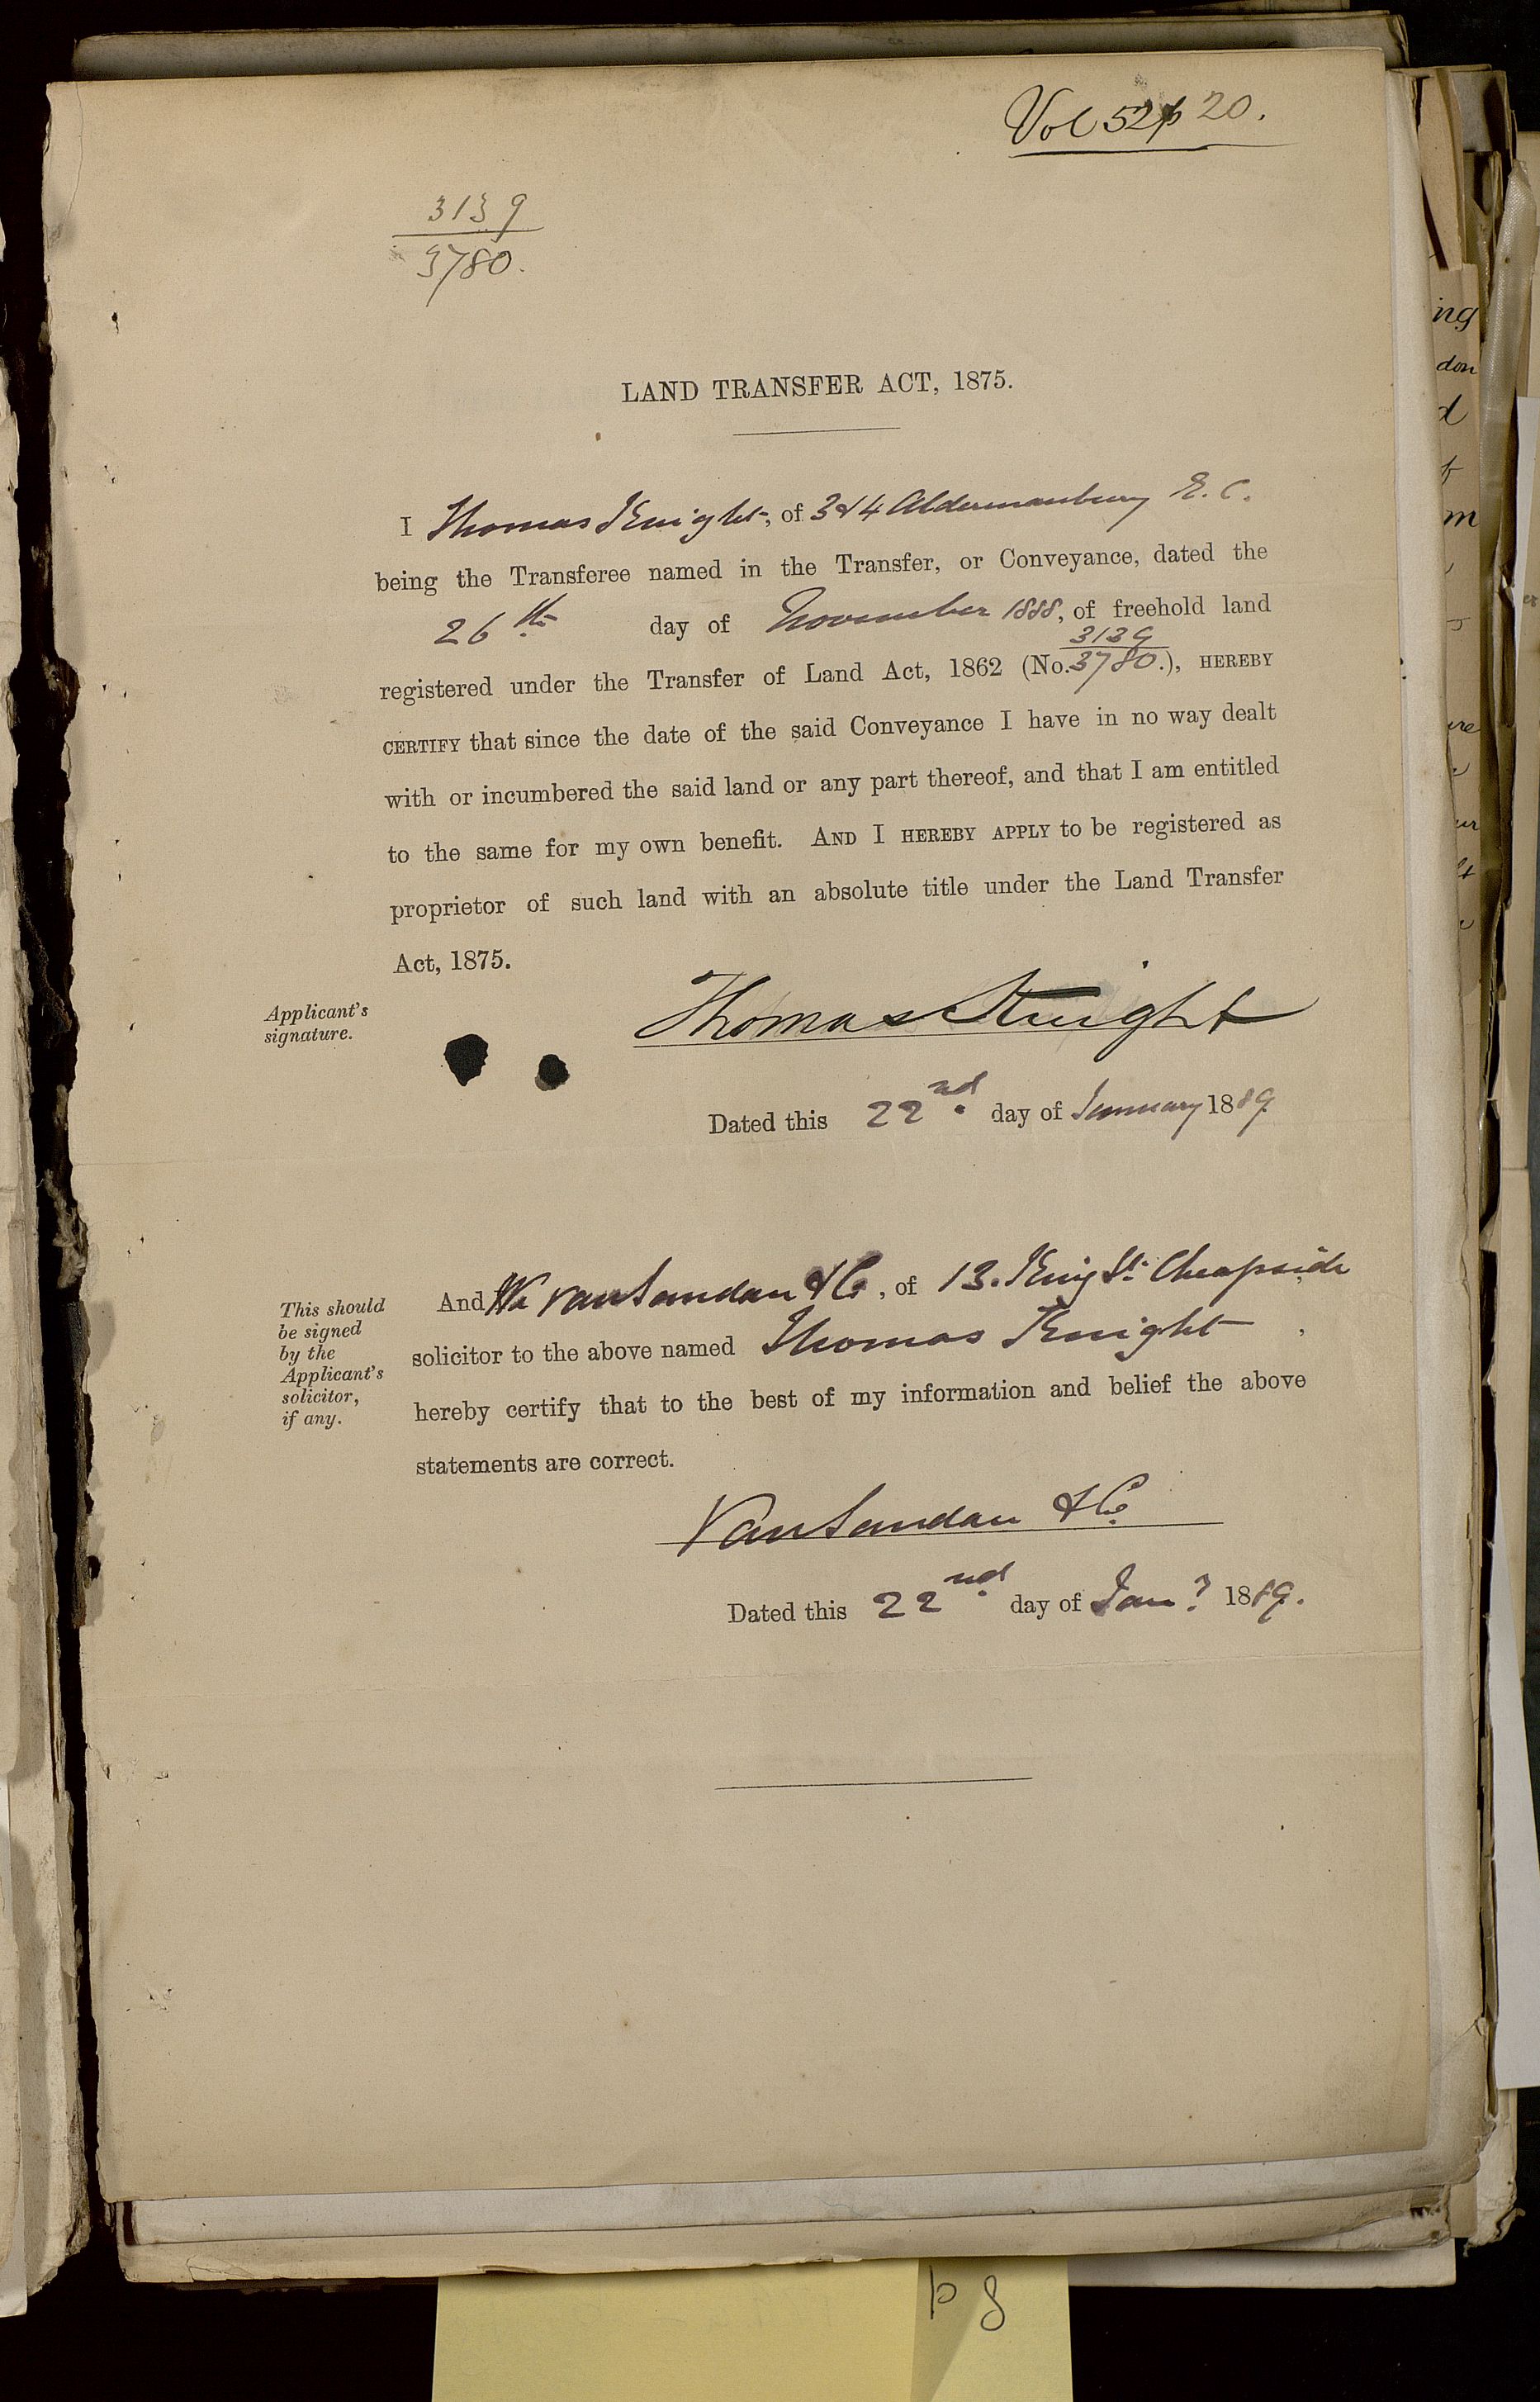 Vol 52 p 20.
3139
3780.
LAND TRANSFER ACT, 1875.
I Thomas Knight, of 3 & 4 Aldermanbury E.C.
being the Transferee named in the Transfer, or Conveyance, dated the
26th day of November 1888, of freehold land
3139
registered under the Transfer of Land Act, 1862 (No. 3780.), HEREBY
CERTIFY that since the date of the said Conveyance I have in no way dealt
with or incumbered the said land or any part thereof, and that I am entitled
to the same for my own benefit. AND I HEREBY APPLY to be registered as
proprietor of such land with an absolute title under the Land Transfer
Act, 1875.
Applicant's
signature.
Thomas Knight
Dated this 22nd day of January 1889
This should
be signed
by the
Applicant's
solicitor,
if any.
And We Van Sandau & Co, of 13. King St. Cheapside
solicitor to the above named Thomas Knight,
hereby certify that to the best of my information and belief the above
statements are correct.
Van Sandau & Co.
Dated this 22nd day of Jany 1889.
ng
don
d
m